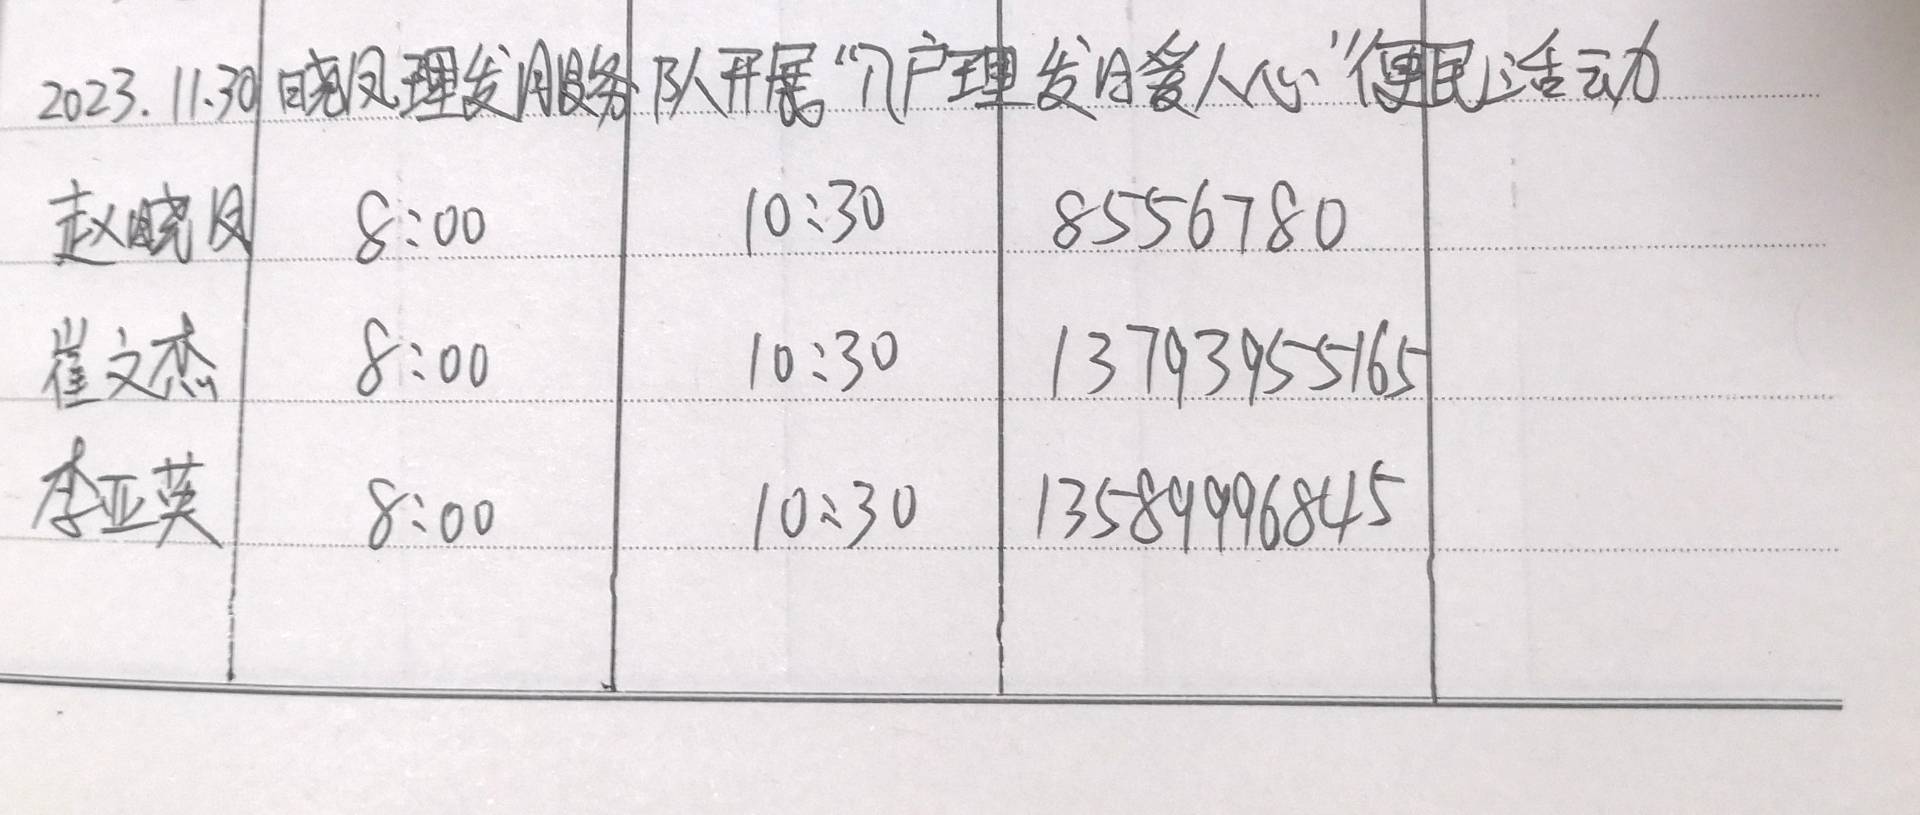 2023.11.30 晓凤理发服务队开展“入户理发月爱人心”便民活动
赵晓凤 8:00 10:30 8556780
崔文杰 8:00 10:30 13793955165
李亚英 8:00 10:30 13589996845